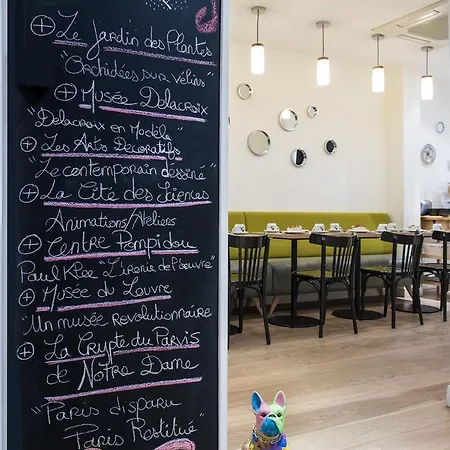 ⊕ Le Jardin des Plantes
"Orchidées sur vélins"
⊕ Musée Delacroix
"Delacroix en Modèle"
⊕ Les Arts Décoratifs
"Le contemporain dessiné"
⊕ La Cité des Sciences
Animations/Ateliers
⊕ Centre Pompidou
Paul Klee "L'ironie de l'oeuvre"
⊕ Musée du Louvre
"Un musée revolutionnaire
⊕ La Crypte du Parvis
de Notre Dame
"Paris disparu
Paris Restitué"